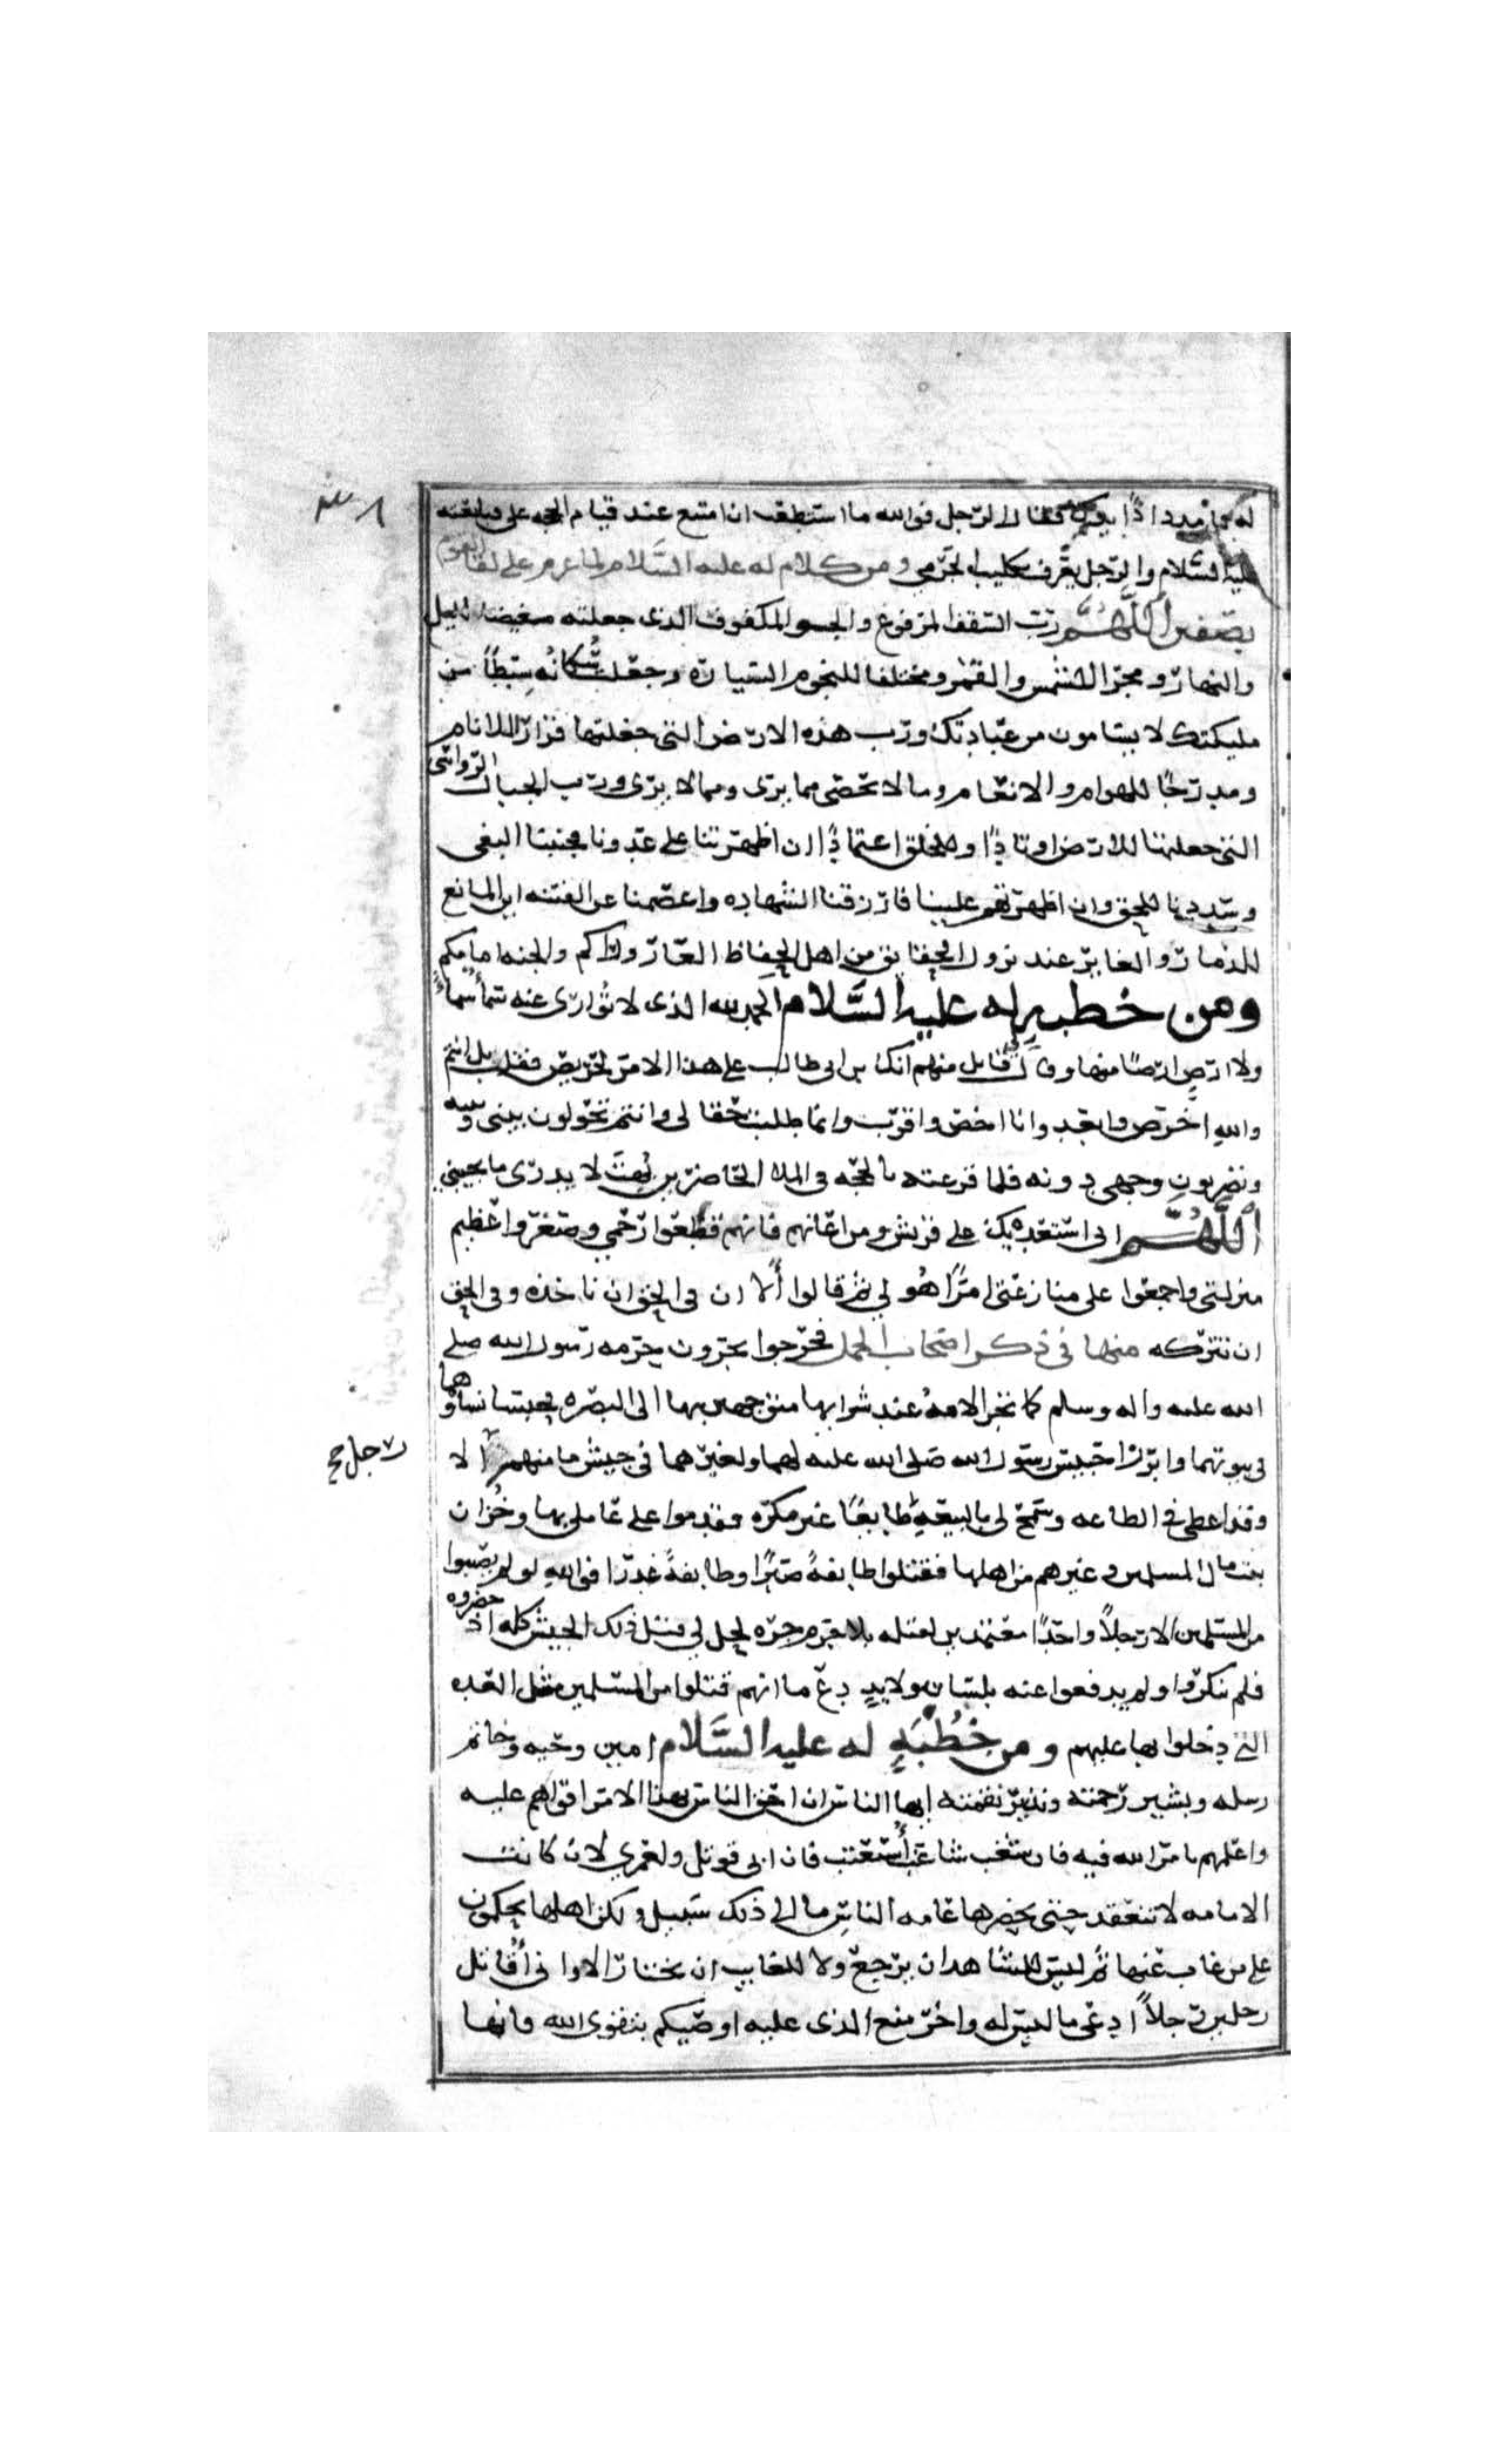 له عليه السلام فامدد اذًا يدك فقال الرجل فوالله ما استطعت ان امتنع عند قيام الحجه على فبايعته
عليه السلام والرجل يعرف بكليب الجرمي ومن كلام له عليه السلام لما عزم على لقا القوم
بصفين اللهم رب السقف المرفوع والجو المكفوف الذى جعلته مغيضا لليل
والنهار ومجرا للشمس والقمر ومختلفا للنجوم السياره وجعلت سكانه سبطًا من
مليكتك لا يسامون من عبادتك ورب هذه الارض التى جعلتها قرارا للانام
ومدرجًا للهوام والانعام وما لا يحصى مما يرى ومما لا يرى ورب الجبال الرواسى
التى جعلتها للارض اوتادًا وللخلق اعتمادًا ان اظهرتنا على عدونا فجنبنا البغى
وسددنا للحق وان اظهرتهم علينا فارزقنا الشهاده واعصمنا من الفتنه اين المانع
للذمار والغاير عند نزول الحقايق من اهل الحفاظ العار وراكم والجنه امامكم
ومن خطبه له عليه السلام الحمد لله الذى لا توارى عنه سماٌ سماً
ولا ارض ارضًا منها وقال قايل منهم انك يا بن ابى طالب على هذا الامر لحريص فقلت بل انتم
والله احرص وابعد وانا اخص واقرب وانما طلبت حقا لى وانتم تحولون بينى وبينه
وتضربون وجهى دونه فلما قرعته بالحجه فى الملا الحاضرين بهت لا يدرى ما يجيبنى
اللهم انى استعديك على قريش ومن اعانهم فانهم قطعوا رحمي وصغروا عظيم
منزلتى واجمعوا على منازعتى امرًا هو لي ثم قالوا ألا ان فى الحق ان تاخذه وفى الحق
ان تتركه منها فى ذكر اصحاب الجمل فخرجوا يجرون حرمه رسول الله صلى
الله عليه واله وسلم كما تجر الامة عند شرايها متوجهين بها الى البصره فحبسا نساهما
فى بيوتهما وابرزا حبيس رسول الله صلى الله عليه لهما ولغيرهما فى جيش ما منهم الا
رجل صح
وقد اعطى فى الطاعه وسمح لى بالبيعه طايعًا غير مكره فقدموا على عاملى بها وخزان
بيت مال المسلمين وغيرهم من اهلها فقتلوا طايفةً صبرًا وطايفةً غدرًا فوالله لو لم يصيبوا
من المسلمين الا رجلاً واحدًا معتمدين لقتله بلا جرم جره لحل لي قتل ذلك الجيش كله اذ حضروه
فلم ينكروا ولم يدفعوا عنه بلسان ولا يد دع ما انهم قتلوا من المسلمين مثل العده
التى دخلوا بها عليهم ومن خطبه له عليه السلام امين وحيه وخاتم
رسله وبشير رحمته ونذير نقمته ايها الناس ان احق الناس بهذا الامر اقواهم عليه
واعلمهم بامر الله فيه فان شغب شاغب أستعتب فان ابى قوتل ولعمري لان كانت
الامامه لا تنعقد حتى يحضرها عامه الناس ما الى ذلك سبيل ولكن اهلها يحكمون
على من غاب عنها ثم ليس للشاهد ان يرجع ولا للغايب ان يختار الا وانى أقاتل
رجلين رجلاً ادعى ما ليس له واخر منع الذى عليه اوصيكم بتقوى الله فانها